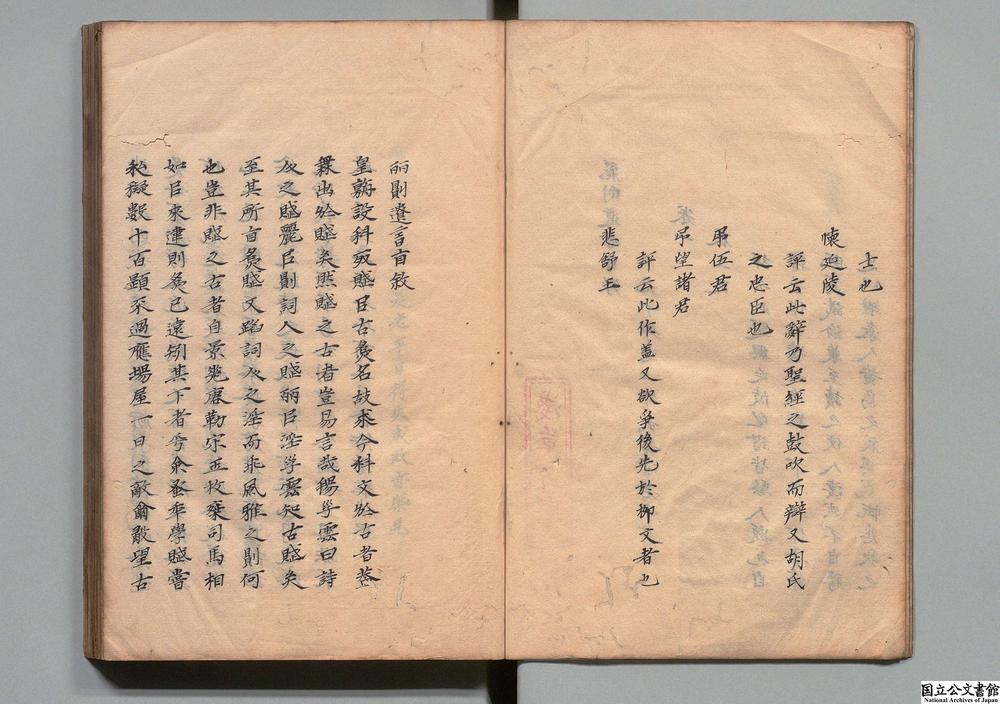 士也
懷延陵
評云此辭乃聖經之鼓吹而辯又胡氏
之忠臣也
弔伍君
弔望諸君
評云此作盖又欲爭後先於柳文者也
悲舒王
丽則遺音自敘
皇朝設科取賦㠯古為名故求今科文於古者蓋
無出於賦矣然賦之古者豈易言哉楊子雲曰詩
人之賦麗㠯則詞人之賦丽㠯淫子雲知古賦矣
至其所自為賦又蹈詞人之淫而乖風雅之則何
也豈非賦之古者自景差唐勒宋玉枚乘司馬相
如㠯來違則為已遠矧其下者乎余蚤年學賦嘗
私擬數十百題不過應場屋一日之敵爾敢望古
国立公文書館
National Archives of Japan